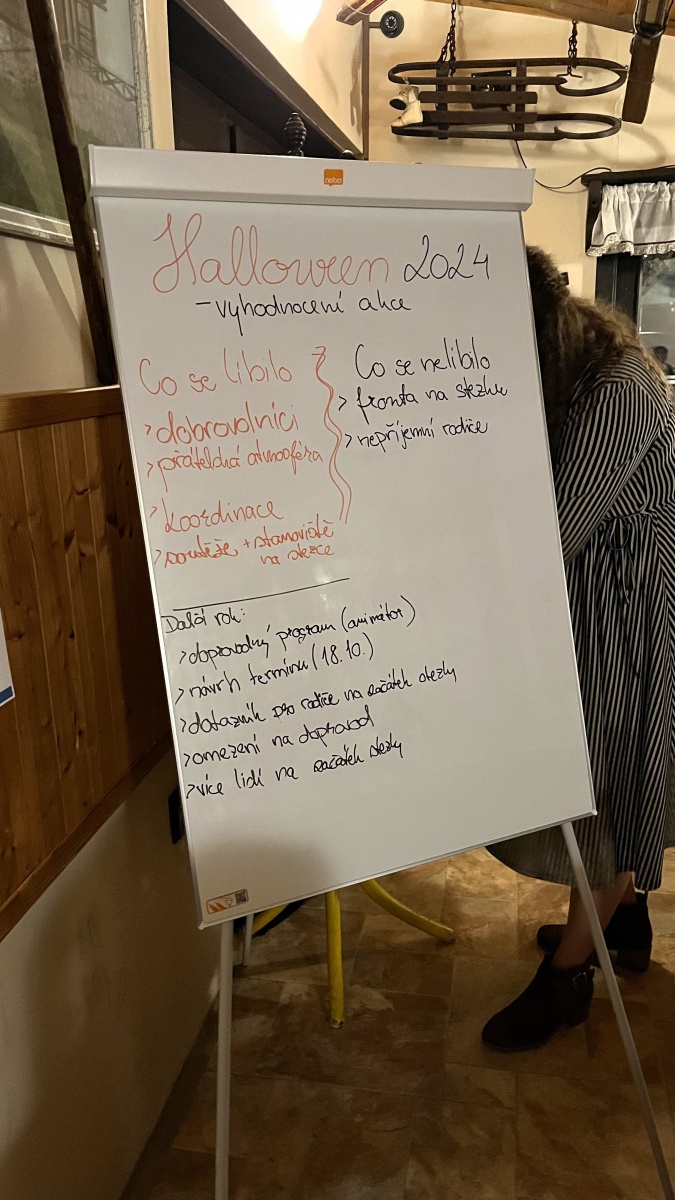 nobo
Halloween 2024
- vyhodnocení akce
Co se líbilo
> dobrovolníci
> přátelská atmosféra
> koordinace
> soutěže + stanoviště
na stezce
Co se nelíbilo
> fronta na stezku
> nepříjemní rodiče
Další rok:
> doprovodný program (animátor)
> návrh termínu (18.10.)
> dotazník pro rodiče na začátek stezky
> omezení na doprovod
> více lidí na začátek stezky